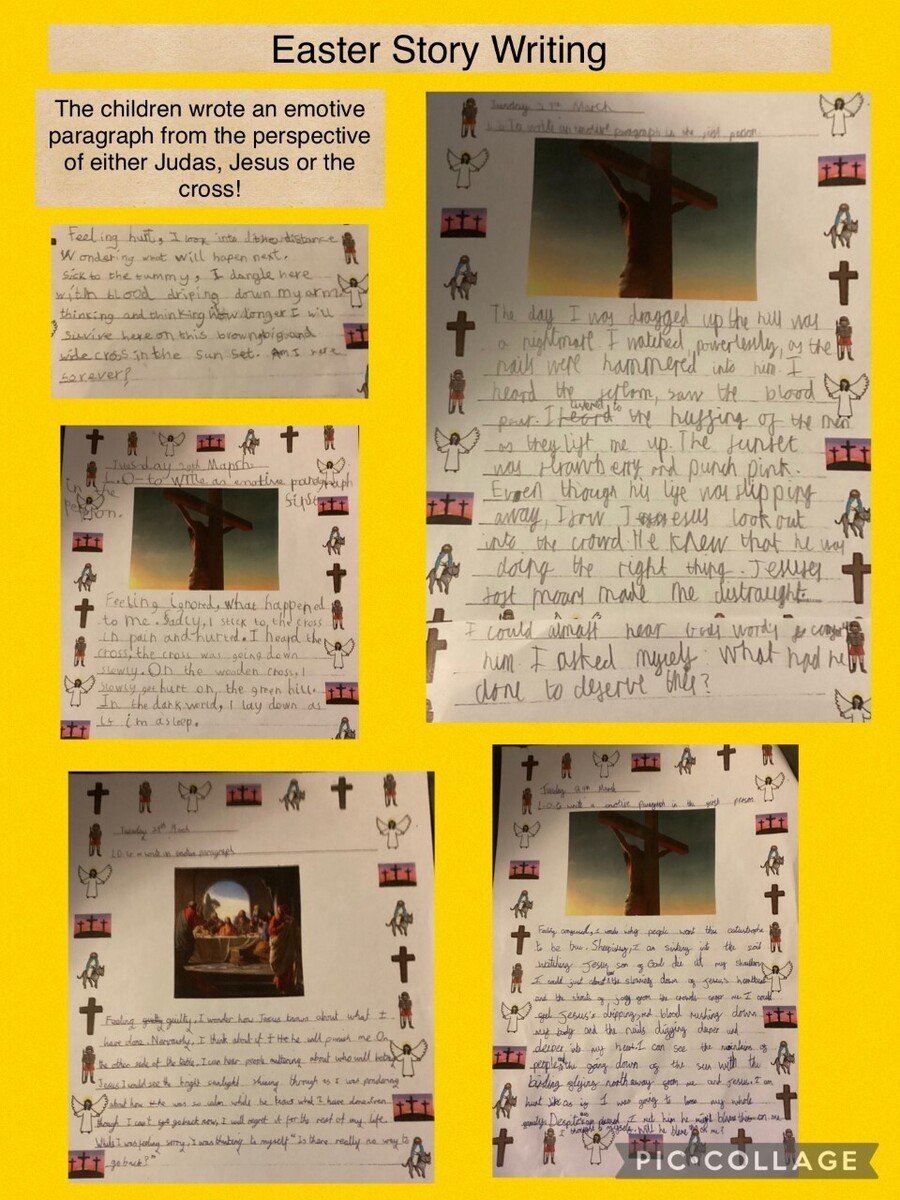 Easter Story Writing
The children wrote an emotive
paragraph from the perspective
of either Judas, Jesus or the
cross!
Feeling hurt, I look into the distance
Wondering what will hapen next.
Sick to the tummy, I dangle here
with blood driping down my arms
thinking and thinking how longer I will
survive here on this brown, big and
wide cross in the sun set. Am I here
forever?
Tuesday 29th March
L.O to write an emotive paragraph in the first person.
The day I was dragged up the hill was
a nightmare. I watched, powerlessly, as the
nails were hammered into him. I
heard the, saw the blood
pour. I listened to the huffing of the men
as they lift me up. The sunset
was strawberry and punch pink.
Even though his life was slipping
away, I saw Jesus look out
into the crowd. He knew that he was
doing the right thing. Jesuses
soft moans made me distraught.
I could almost hear Gods words
him. I asked myself: What had he
done to deserve this?
Tuesday 29th March
L.O- to write an emotive paragraph
in the first
person.
Feeling ignored, what happened
to me. Sadly, I stick to the cross
in pain and hurted. I heard the
cross, the cross was going down
slowly. On the wooden cross, I
slowly get hurt on, the green hill.
In the dark world, I lay down as
if i'm asleep.
Tuesday 29th March
L.O. to write an paragraph
Feeling guilty, I wonder how Jesus knows about what I
have done. Nervously, I think about if he will punish me. On
the other side of the table, I can hear people muttering about who will betray
Jesus. I could see the bright sunlight shining through as I was pondering
about how he was so calm while he knows what I have done. Even
though I can't go back now, I will regret it for the rest of my life.
While I was feeling sorry, I was thinking to myself "Is there really no way to
go back?"
Tuesday 29th March
L.O. to write a emotive paragraph in the first person.
Feeling, I wonder why people want this catastrophe
to be true. I am sinking into the soil
watching Jesus, son of God die at my
I could just about the slowing down of Jesus's heartbeat
and the shouts of from the crowds anger me. I could
feel Jesus's dripping red blood rushing down
my body and the nails digging deeper and
deeper into my heart. I can see the mountains of
people, the going down of the sun with the
birds flying north away from me and Jesus. I am
hurt like as if I was going to lose my whole
family. Despite I met him he might blame this on me.
I thought to myself, will he blame me?
PIC•COLLAGE